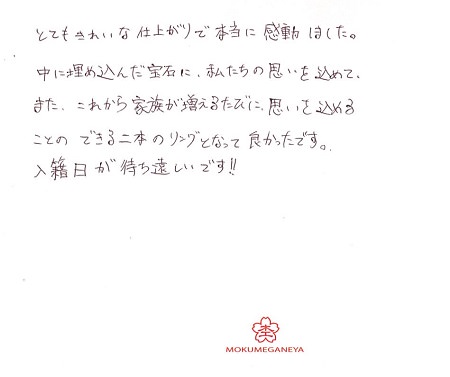 とてもきれいな仕上がりで本当に感動しました。
中に埋め込んだ宝石に、私たちの思いを込めて、
また、これから家族が増えるたびに、思いを込める
ことの できる二本のリングとなって良かったです。
入籍日が待ち遠しいです!!
MOKUMEGANEYA